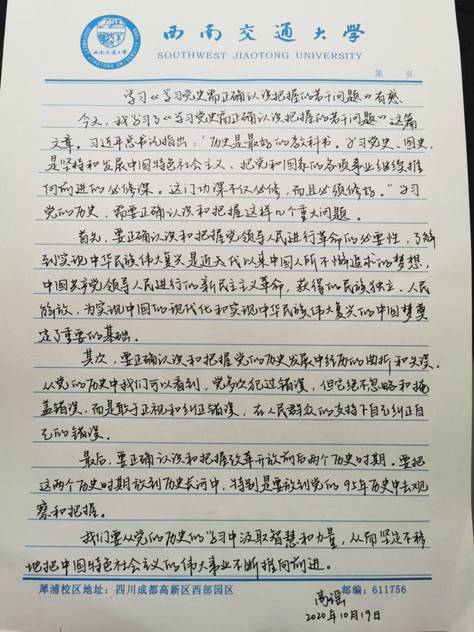 西南交通大学
SOUTHWEST JIAOTONG UNIVERSITY
第 页
学习《学习党史需正确认识把握的若干问题》有感
今天，我学习了《学习党史需正确认识把握的若干问题》这篇
文章。习近平总书记指出：“历史是最好的教科书，学习党史、国史，
是坚持和发展中国特色社会主义、把党和国家的各项事业继续推
向前进的必修课。这门功课不仅必修，而且必须修好。”学习
党的历史，需要正确认识和把握这样几个重大问题。
首先，要正确认识和把握党领导人民进行革命的必要性，了解
到实现中华民族伟大复兴是近代以来中国人所不懈追求的梦想，
中国共产党领导人民进行的新民主主义革命，获得的民族独立、人民
解放，为实现中国的现代化和实现中华民族伟大复兴的中国梦奠
定了重要的基础。
其次，要正确认识和把握党的历史发展中经历的曲折和失误。
从党的历史中我们可以看到，党多次犯过错误，但它绝不忽略和掩
盖错误，而是敢于正视和纠正错误，在人民群众的支持下自己纠正自
己的错误。
最后，要正确认识和把握改革开放前后两个历史时期。要把
这两个历史时期放到历史长河中，特别是要放到党的95年历史中去观
察和把握。
我们要从党的历史的学习中汲取智慧和力量，从而坚定不移
地把中国特色社会主义的伟大事业不断推向前进。
犀浦校区地址：四川成都高新区西部园区 邮编：611756
高瑶
2020年10月19日